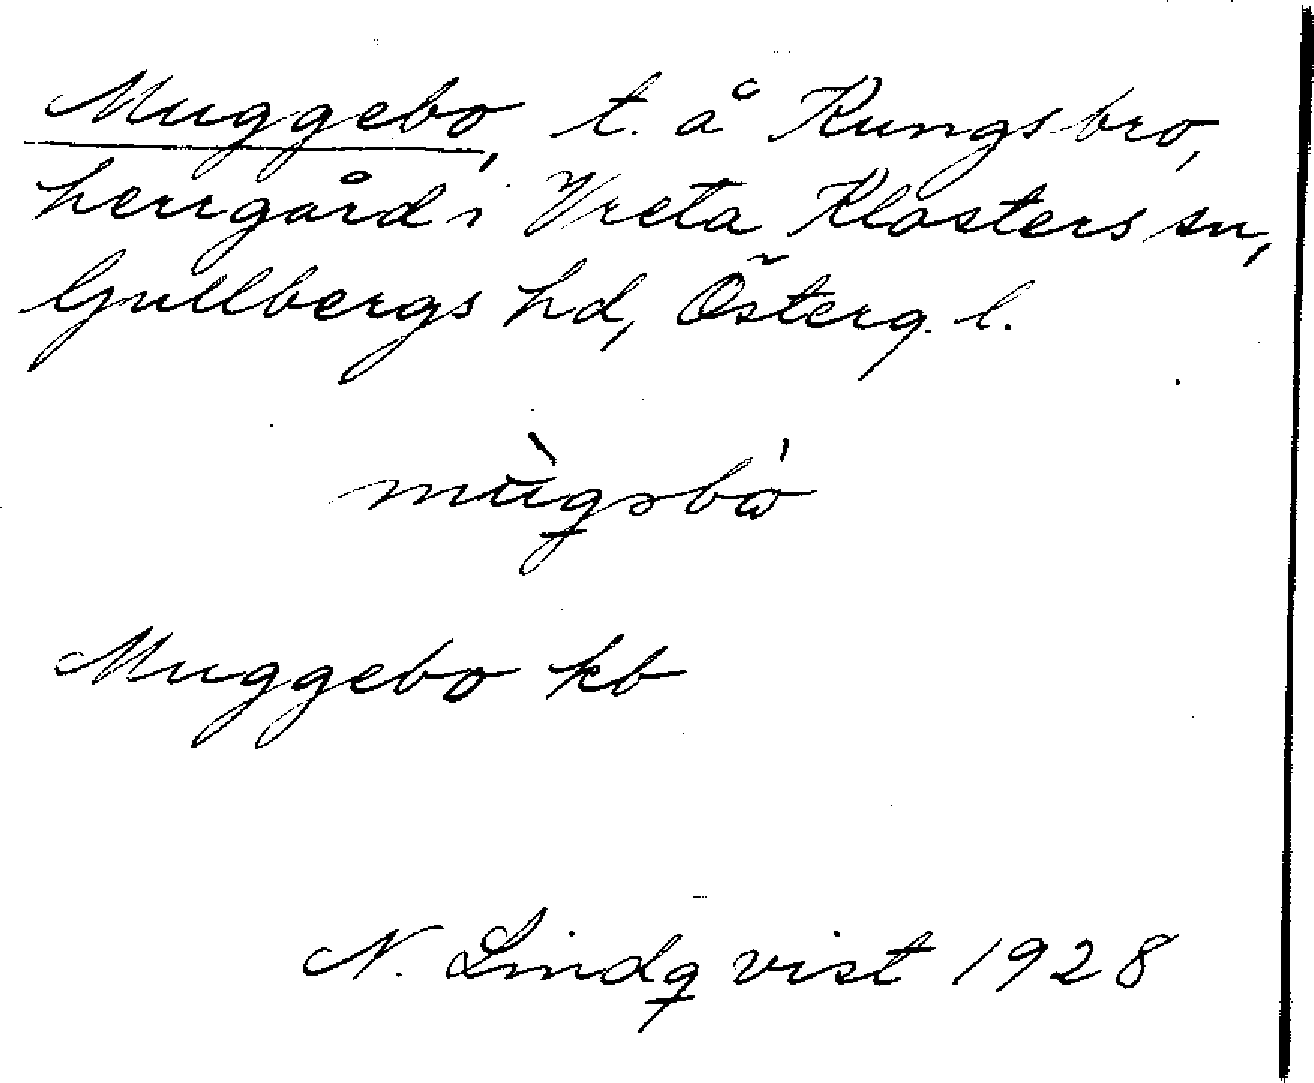 Muggebo, t. å Kungsbro,
herrgård i Vreta Klosters sn,
Gullbergs hd, Österg. l.
mùgəbò
Muggebo kb
N. Lindqvist 1928